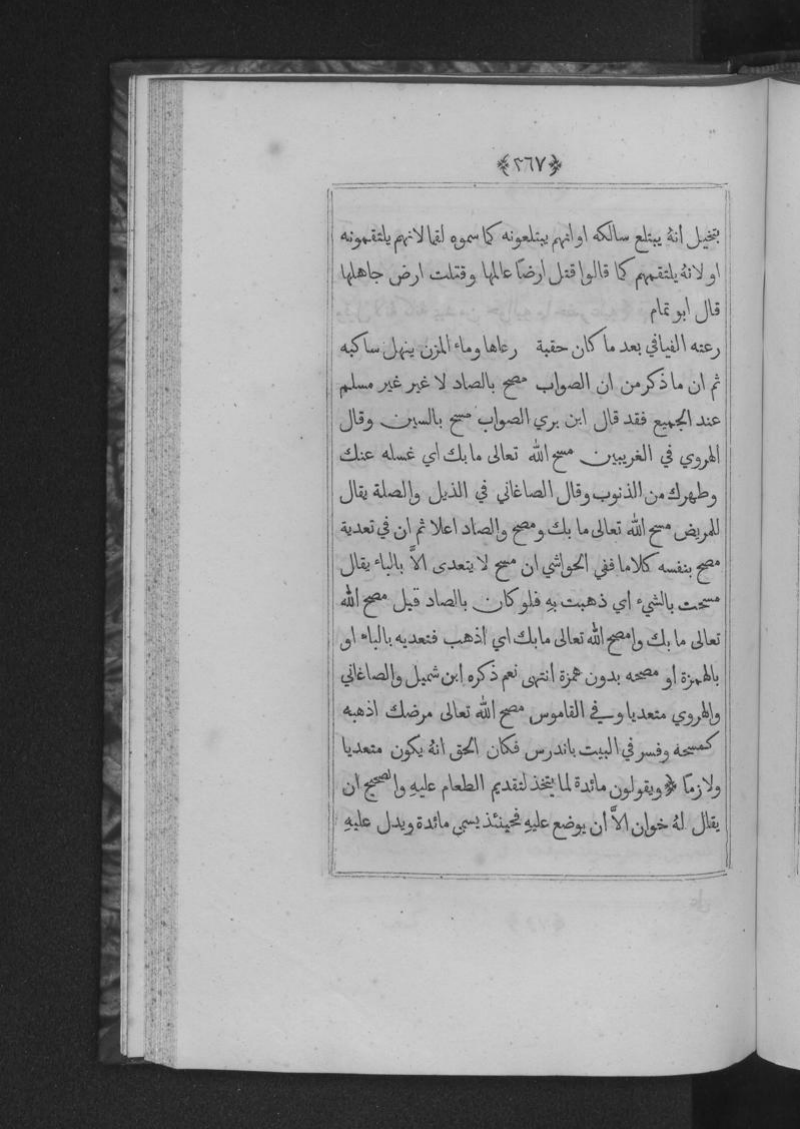 ﴿٢٦٧﴾
بتخيل انهُ يبتلع سالكه او انهم يبتلعونه كما سموه لقما لانهم يلتقمونه
او لانهُ يلتقمهم كما قالوا قتل ارضًا عالمها وقتلت ارض جاهلها
قال ابو تمام
رعته الفيافي بعد ما كان حقبة رعاها وماء المزن ينهل ساكبه
ثم ان ما ذكر من ان الصواب مصح بالصاد لا غير غير مسلم
عند الجميع فقد قال ابن بري الصواب مسح بالسين وقال
الهروي في الغريبين مسح الله تعالى ما بك اي غسله عنك
وطهرك من الذنوب وقال الصاغاني في الذيل والصلة يقال
للمريض مسح الله تعالى ما بك ومصح والصاد اعلا ثم ان في تعدية
مصح بنفسه كلاما ففي الحواشي ان مسح لا يتعدى الاَّ بالباء يقال
مسحت بالشيء اي ذهبت بهِ فلو كان بالصاد قيل مصح الله
تعالى ما بك وامصح الله تعالى ما بك اي اذهب فتعديه بالباء او
بالهمزة او مصحه بدون همزة انتهى نعم ذكره ابن شميل والصاغاني
والهروي متعديا وفي القاموس مصح الله تعالى مرضك اذهبه
كمسحه وفسر في البيت باندرس فكان الحق انهُ يكون متعديا
ولازمًا ﴿ ويقولون مائدة لما يتخذ لتقديم الطعام عليهِ والصحيح ان
يقال لهُ خوان الاَّ ان يوضع عليهِ فحينئذ يسمى مائدة ويدل عليهِ